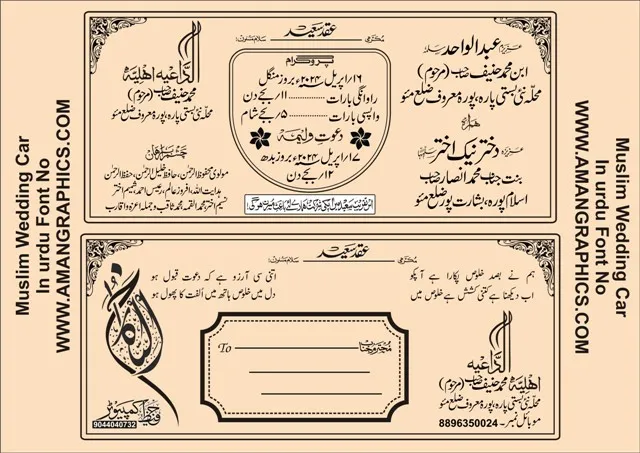 Muslim Wedding Car
In urdu Font No
WWW.AMANGRAPHICS.COM
عقد سعید
مکرمی
سلام مسنون!
عزیزم عبدالواحد سلمہ
ابن محمد حنیف صاحب (مرحوم)
محلہ نئی بستی پارہ، پورہ معروف ضلع مئو
ہمراہ
عزیزہ دختر نیک اختر سلمہا
بنت جناب محمد انصار صاحب
اسلام پورہ، بشارت پور ضلع مئو
پروگرام
۱۶/اپریل ۲۰۲۴ء بروز منگل
روانگی بارات ......... ۱۱/بجے دن
واپسی بارات ......... ۵/بجے شام
دعوت ولیمہ
۱۷/اپریل ۲۰۲۴ء بروز بدھ
۱۲/بجے دن
الداعیہ اہلیہ
محمد حنیف صاحب (مرحوم)
محلہ نئی بستی پارہ، پورہ معروف ضلع مئو
چشم براہان
مولوی محفوظ الرحمٰن، حافظ خلیل الرحمٰن، حفیظ الرحمٰن
ہدایت اللہ، افروز عالم، رئیس احمد، شمیم اختر
نسیم اختر، محمد القمہ، محمد ثاقب و جملہ اعزہ و اقارب
عقد سعید
مکرمی
سلام مسنون!
ہم نے بصد خلوص پکارا ہے آپکو
اب دیکھنا ہے کتنی کشش ہے خلوص میں
اتنی سی آرزو ہے کہ دعوت قبول ہو
دل میں خلوص ہاتھ میں الفت کا پھول ہو
محترم جناب
To
الداعیہ
اہلیہ محمد حنیف صاحب (مرحوم)
محلہ نئی بستی پارہ، پورہ معروف ضلع مئو
موبائل نمبر۔ 8896350024
کمپیوٹر
9044040732
Muslim Wedding Car
In urdu Font No
WWW.AMANGRAPHICS.COM